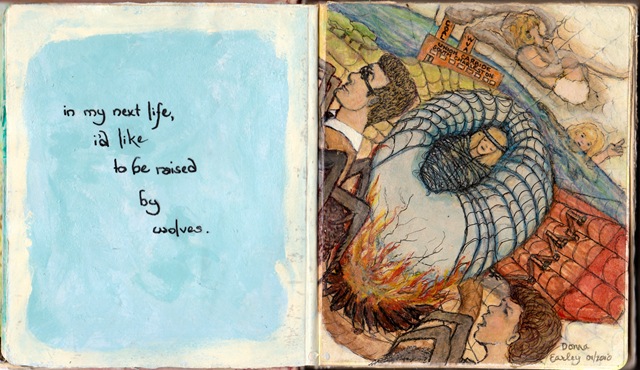 in my next life,
i'd like
to be raised
by
wolves.
Donna
Earley 01/2010